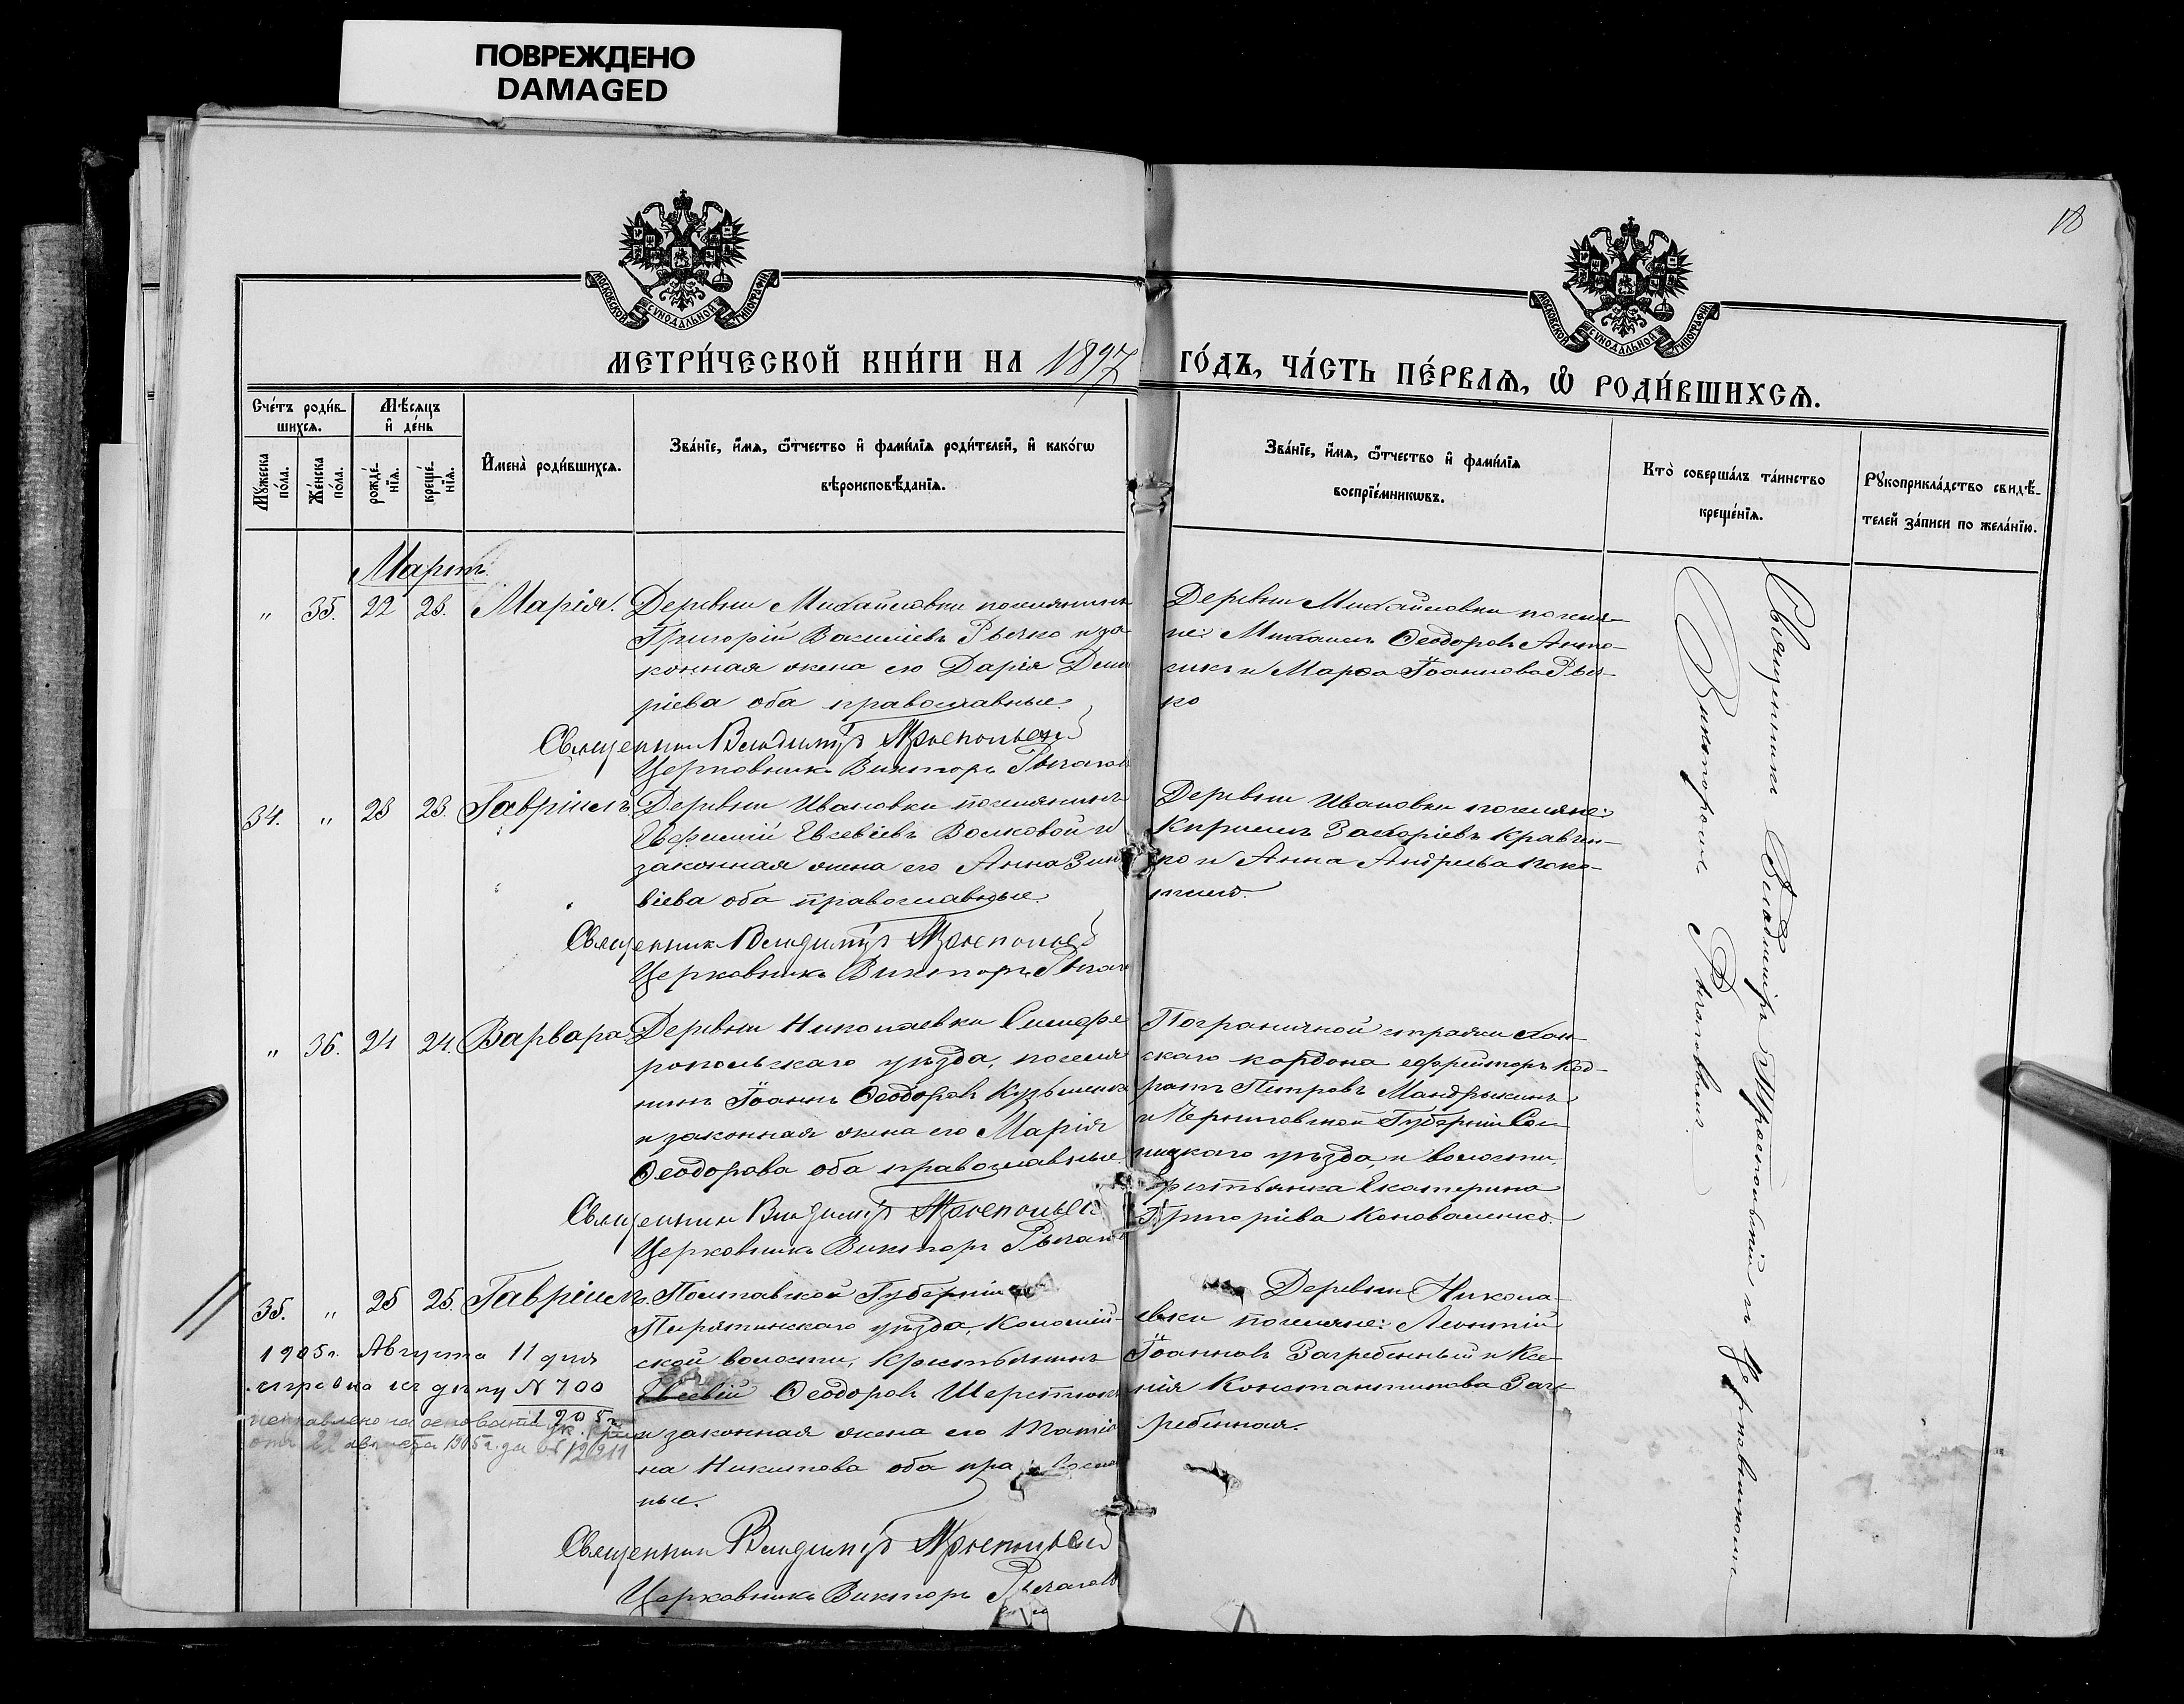 ПОВРЕЖДЕНО
DAMAGED
18
МОСКОВСКОЙ СѴНОДАЛЬНОЙ ТИПОГРАФІИ
МОСКОВСКОЙ СѴНОДАЛЬНОЙ ТИПОГРАФІИ
МЕТРИ́ЧЕСКОЙ КНИ́ГИ НА 1897 ГО́ДЪ, ЧА́СТЬ ПЕ́РВАѦ, Ѡ҆ РОДИ́ВШИХСѦ.
Сче́тъ роди́в-
шихсѧ.
Мꙋ́жеска
по́ла.
Же́нска
по́ла.
Мѣ́сѧцъ
и҆ де́нь
рожде́-
нїѧ.
креще́-
нїѧ.
И҆мена̀ роди́вшихсѧ.
Зва́нїе, и҆́мѧ, ѻ҆́тчество и҆ фами́лїѧ роди́телей, и҆ како́гѡ
вѣроисповѣ́данїѧ.
Зва́нїе, и҆́мѧ, ѻ҆́тчество и҆ фами́лїѧ
воспрїе́мникѡвъ.
Кто̀ соверша́лъ та́инство
креще́нїѧ.
Рꙋкоприкла́дство свидѣ́-
телей за́писи по жела́нїю.
Мартъ.
" 35. 22 23. Марія.
Деревни Михайловки поселянинъ
Григорій Васильевъ Рычко и за
конная жена его Дарія
ріева оба православные.
Священникъ Владиміръ
Церковникъ Викторъ Рычагов
Деревни Михайловки поселя-
не: Михаилъ Ѳеодоровъ
и Марѳа Іоаннова Рыч-
ко
34. " 23 23. Гавріилъ
Деревни Ивановки поселянинъ
Евфимій Евсевіевъ Волковой и
законная жена его Анна Зино
віева оба православные.
Священникъ Владиміръ
Церковникъ Викторъ Рычаг
Деревни Ивановки поселяне:
Кириллъ Захаріевъ Кравчен-
ко и Анна Андреева
" 36. 24 24. Варвара
Деревни Николаевки Симфе
ропольскаго уѣзда, поселя
нинъ Іоаннъ Ѳеодоровъ Кузьменко
и законная жена его Марія
Ѳеодорова оба православные.
Священникъ Владиміръ
Церковникъ Викторъ Рычаго
Пограничной стражи
скаго кордона ефрейторъ Код-
ратъ Петровъ Мандрыкинъ
и Черниговской Губерніи Сос-
ницкаго уѣзда, и волости,
крестьянка Екатерина
Григоріева Коноваленко.
35. " 25 25. Гавріилъ.
Полтавской Губерніи
Пирятинскаго уѣзда,
ской волости, Крестьянинъ
Евсевій Ѳеодоровъ Шерстюкъ
и законная жена его
на Никитова оба правосла
ные.
Священникъ Владиміръ
Церковникъ Викторъ Рычагов
Деревни Никола-
евки поселяне: Леонтій
Іоанновъ Загребенный и Ксе-
нія Константинова Заг-
ребенная.
1905 г. Августа 11 дня
справка къ дѣлу № 700
1905 г.
исправлено на основаніи ук.
отъ 22 августа 1905 г. за № 12911
Священникъ Владиміръ и Церковникомъ
Викторомъ Рычаговымъ